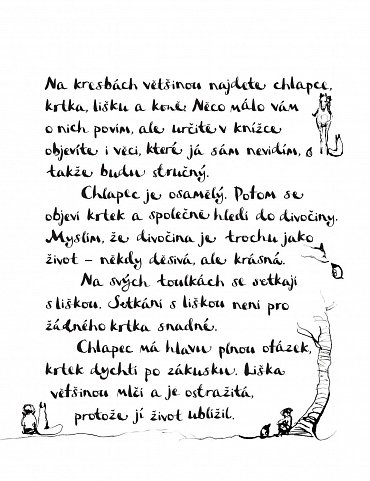 Na kresbách většinou najdete chlapce,
krtka, lišku a koně. Něco málo vám
o nich povím, ale určitě v knížce
objevíte i věci, které já sám nevidím,
takže budu stručný.
Chlapec je osamělý. Potom se
objeví krtek a společně hledí do divočiny.
Myslím, že divočina je trochu jako
život – někdy děsivá, ale krásná.
Na svých toulkách se setkají
s liškou. Setkání s liškou není pro
žádného krtka snadné.
Chlapec má hlavu plnou otázek,
krtek dychtí po zákusku. Liška
většinou mlčí a je ostražitá,
protože jí život ublížil.